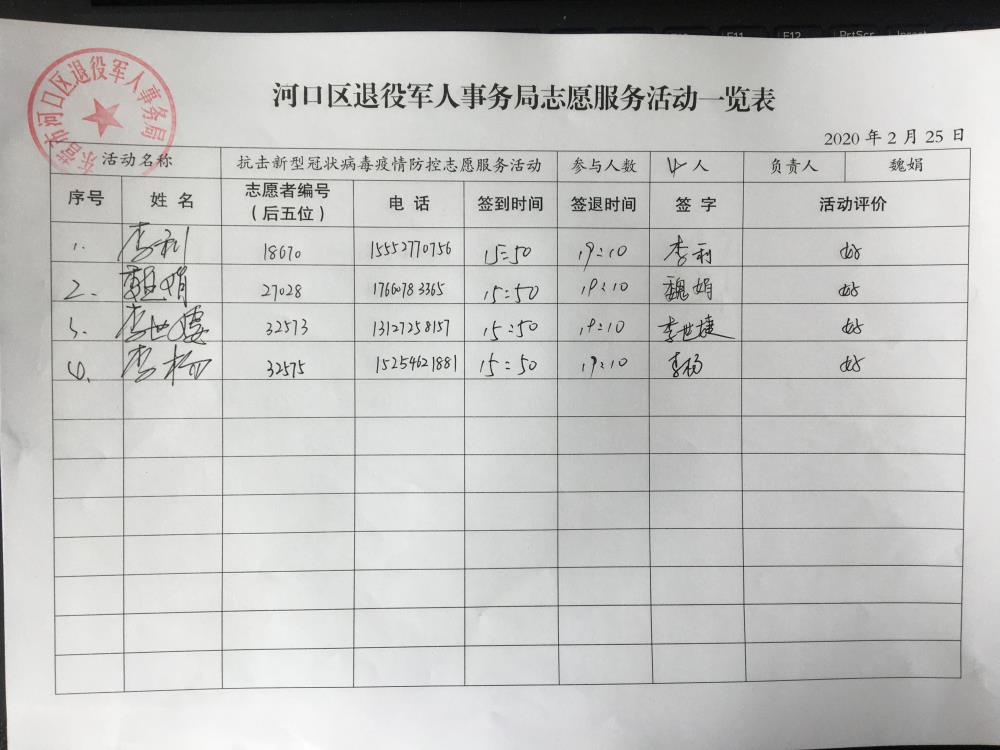 F11 F12 PrtScr Insert
东营市河口区退役军人事务局
河口区退役军人事务局志愿服务活动一览表
2020 年 2 月 25 日
活动名称 抗击新型冠状病毒疫情防控志愿服务活动 参与人数 4 人 负责人 魏娟
序号 姓 名 志愿者编号（后五位） 电 话 签到时间 签退时间 签 字 活动评价
1. 李利 18670 15552770756 15:50 19:10 李利 好
2. 魏娟 27028 17660783365 15:50 19:10 魏娟 好
3. 李世捷 32573 13127258157 15:50 19:10 李世捷 好
4. 李杨 32575 15254621881 15:50 19:10 李杨 好